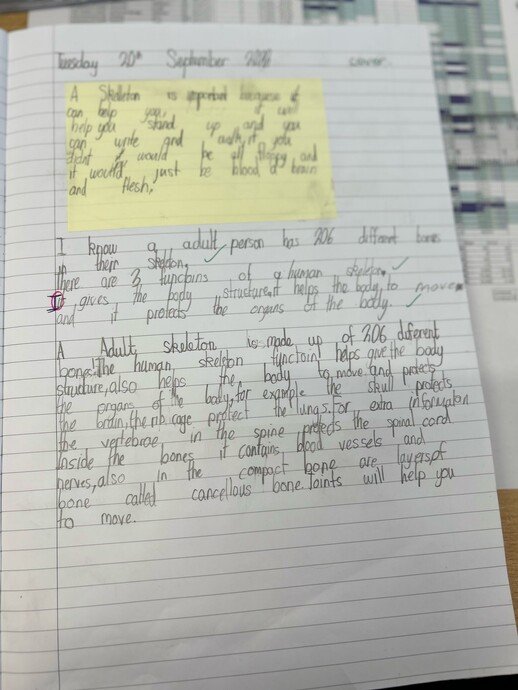 Tuesday 20th September cover
A Skeleton is importent becquese it
can help you, it will
help you stand up and you
can write and walk, if you
didnt it would be all floppy and
it would just be blood a brain
and flesh,
I know a adult person has 206 different bones
in ther skeleton,
there are 3 functoins of a human skeleton,
It gives the body structure, it helps the body, to move
and it protects the organs of the body.
A Adult skeleton is made up of 206 different
bones. The human skeleton functoin helps give the body
structure, also helps the body to move and protects
the organs of the body, for example the skull protects
the brain, the rib cage protect the lungs. for extra informaton
the vertebrae in the spine protects the spinal cord
Inside the bones it contains blood vessels and
nerves, also in the compact bone are layers of
bone called cancellous bone. Joints will help you
to move.